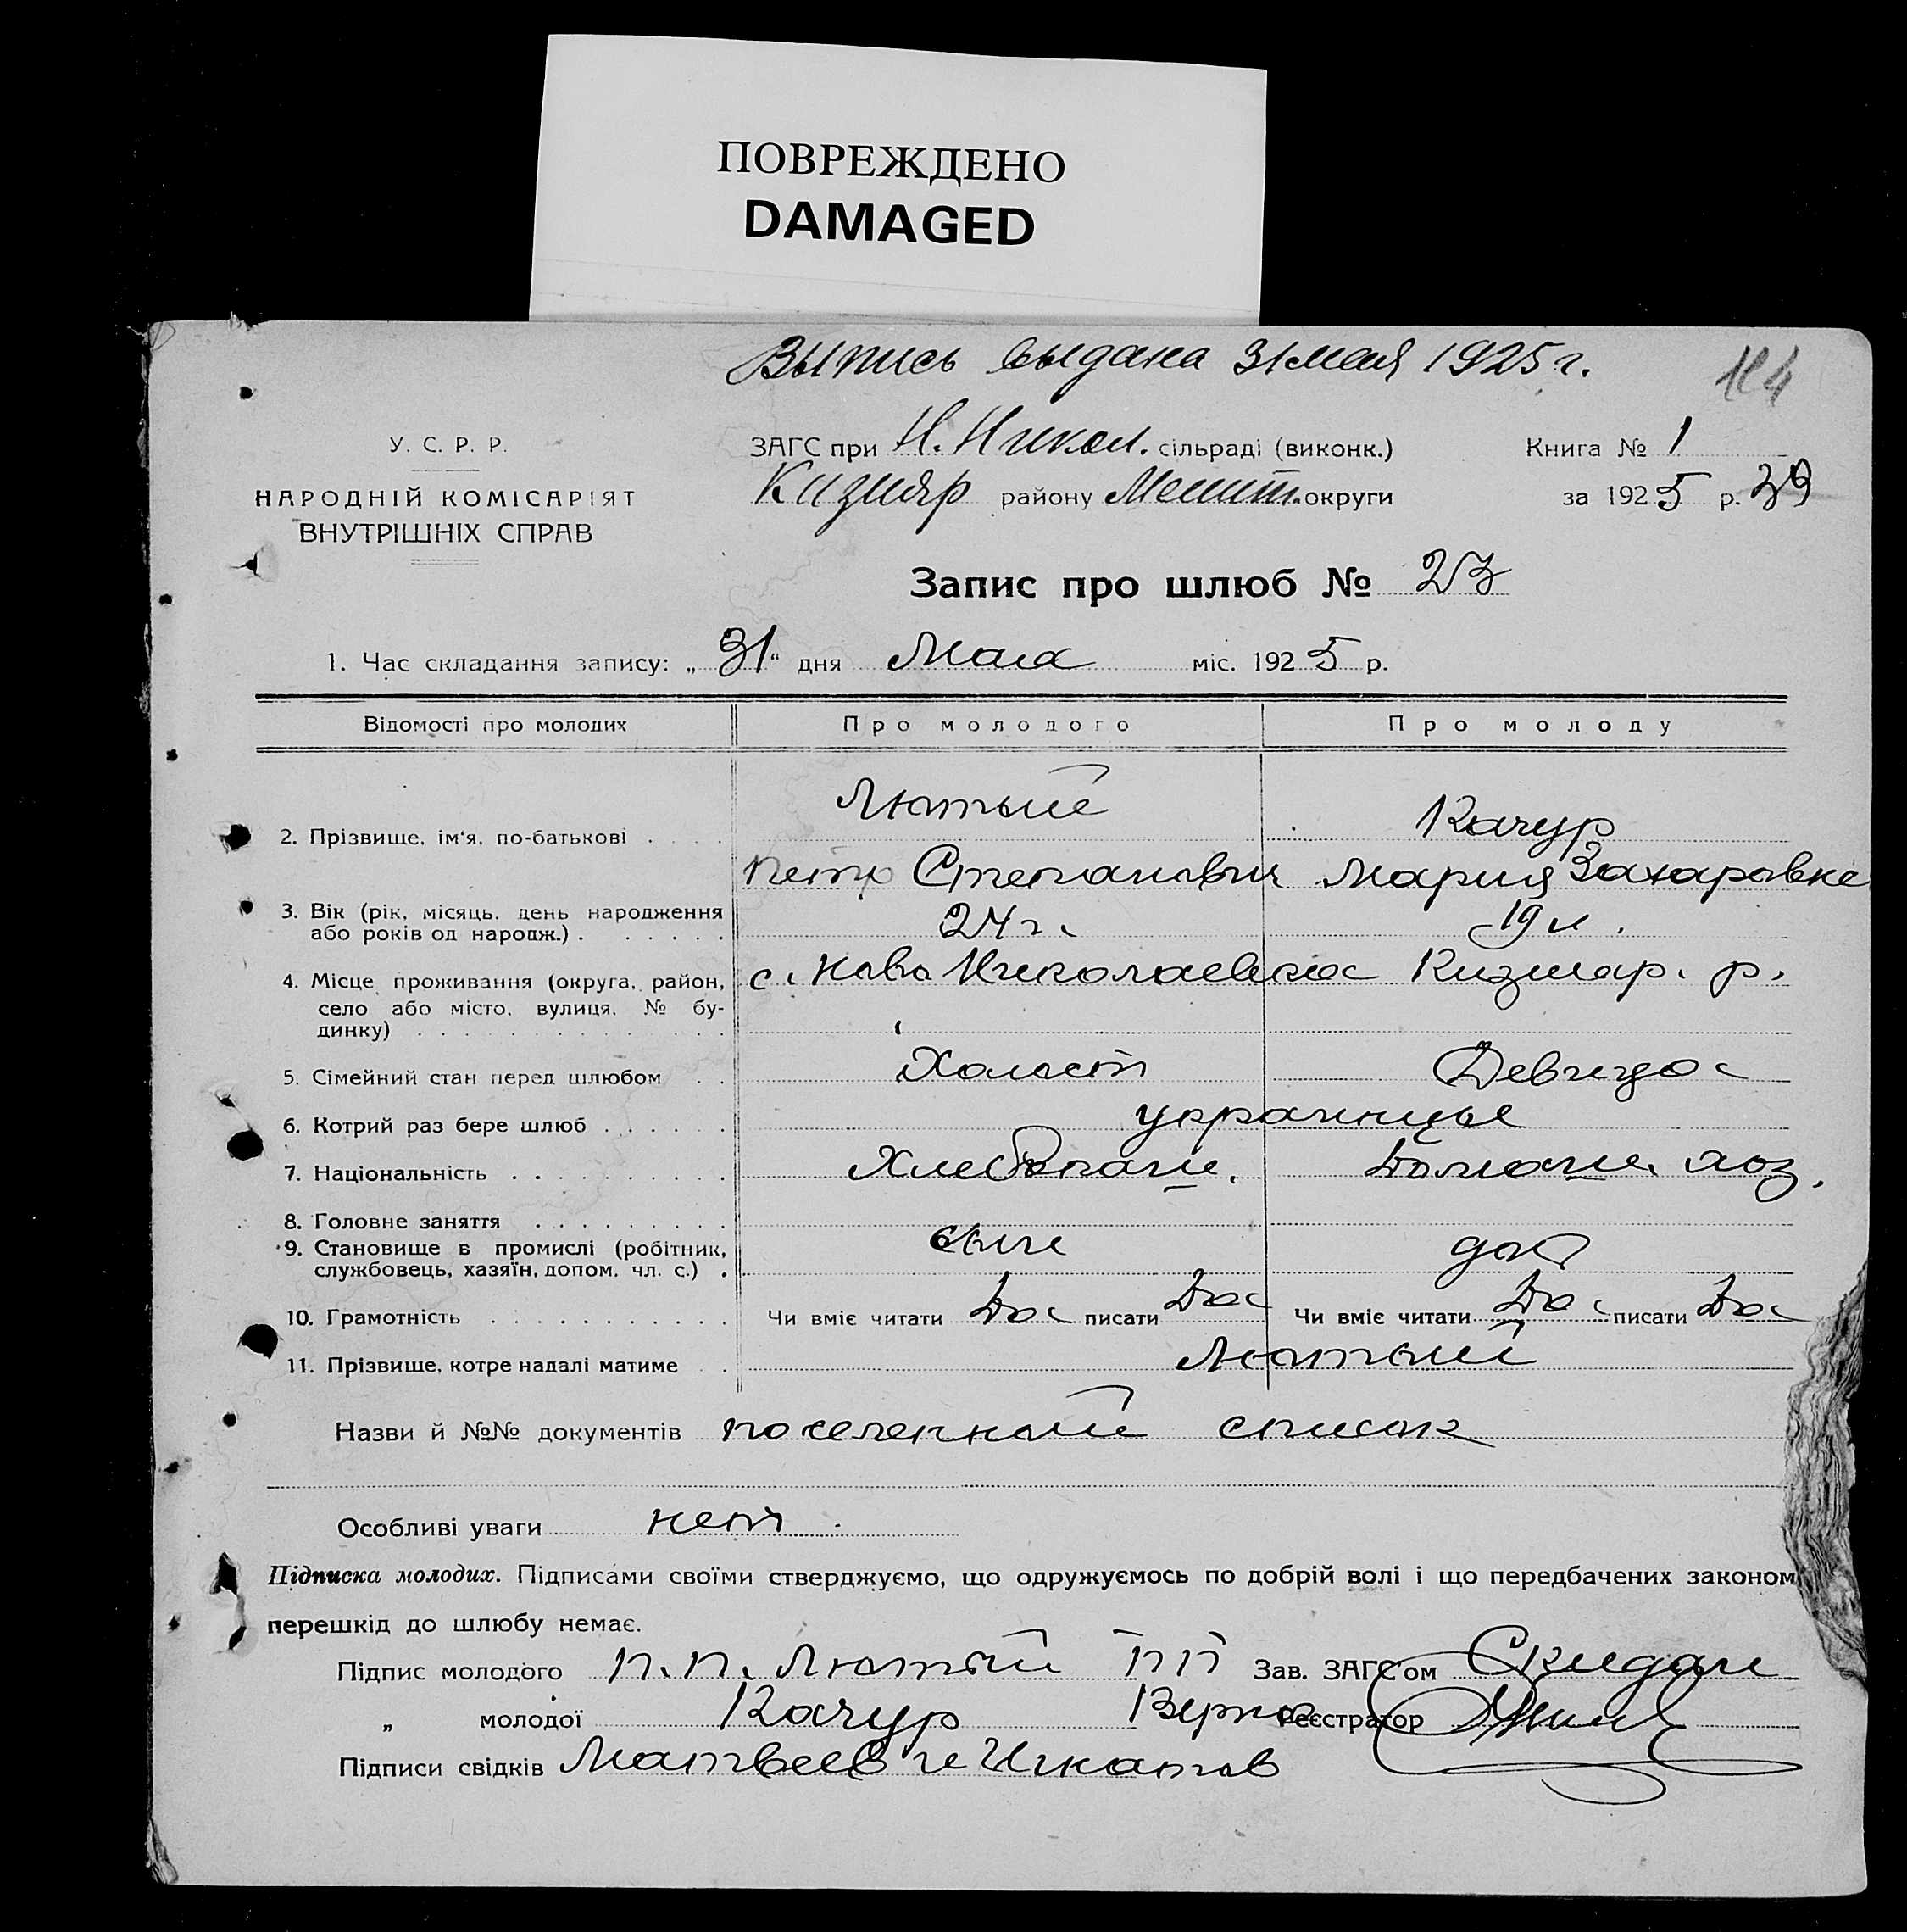 ПОВРЕЖДЕНО
DAMAGED
Выпись выдана 31 мая 1925 г.
У. С. Р. Р.
НАРОДНІЙ КОМІСАРІЯТ
ВНУТРІШНІХ СПРАВ
ЗАГС при Н. Никол. сільраді (виконк.)
Кизияр району Мелит. округи
Книга № 1
за 1925 р. 39
Запис про шлюб № 23
1. Час складання запису: „ 31 “ дня Мая міс. 1925 р.
Відомості про молодих Про молодого Про молоду
Лютый Качур
2. Прізвище, ім'я, по-батькові
Петр Степанович Мария Захаровна
3. Вік (рік, місяць, день народження
або років од народж.) 24 г. 19 л.
4. Місце проживання (округа, район, с. Ново Николаевка Кизияр. р.
село або місто, вулиця, № бу-
динку)
5. Сімейний стан перед шлюбом Холост Девица
6. Котрий раз бере шлюб украинцы
7. Національність Хлебопаш. Домаш. хоз.
8. Головне заняття
9. Становище в промислі (робітник, сын доч
службовець, хазяїн, допом. чл. с.)
10. Грамотність Чи вміє читати Да писати Да Чи вміє читати Да писати Да
11. Прізвище, котре надалі матиме Лютый
Назви й №№ документів поселенный список
Особливі уваги нет
Підписка молодих. Підписами своїми стверджуємо, що одружуємось по добрій волі і що передбачених законом
перешкід до шлюбу немає.
Підпис молодого п.п. Лютый ПП Зав. ЗАГС'ом Скидан
„ молодої Качур Верно Реєстратор
Підписи свідків Матвеев и Игнатов